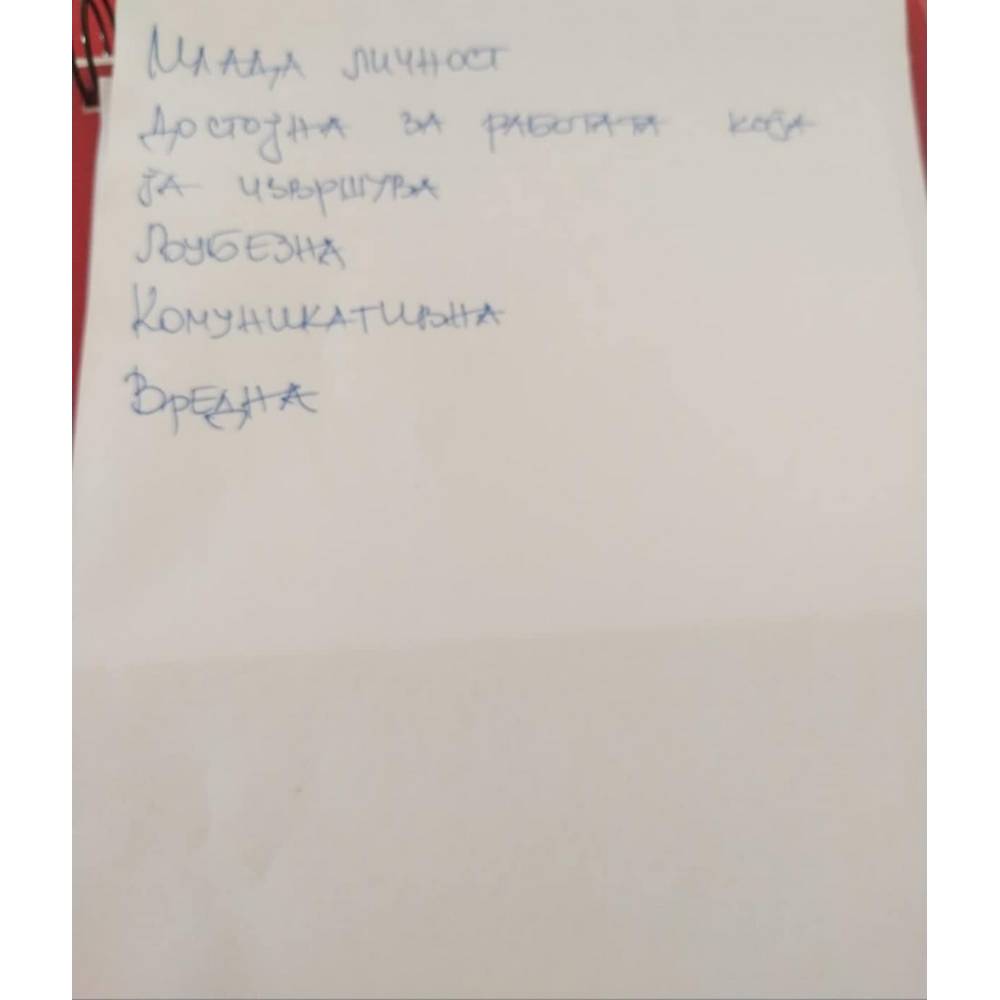 Млада личност
Достојна за работата која
ја извршува
Љубезна
Комуникативна
Вредна